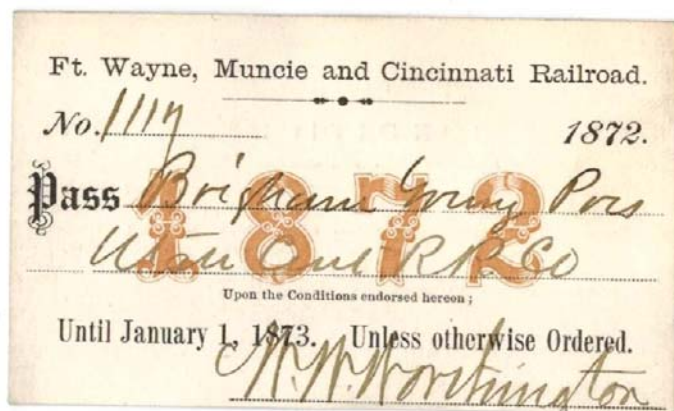 Ft. Wayne, Muncie and Cincinnati Railroad.
No. 1117 1872.
1872
Pass Brigham Young Pres
Utah Cent R R Co
Upon the Conditions endorsed hereon;
Until January 1, 1873. Unless otherwise Ordered.
W. W. Worthington